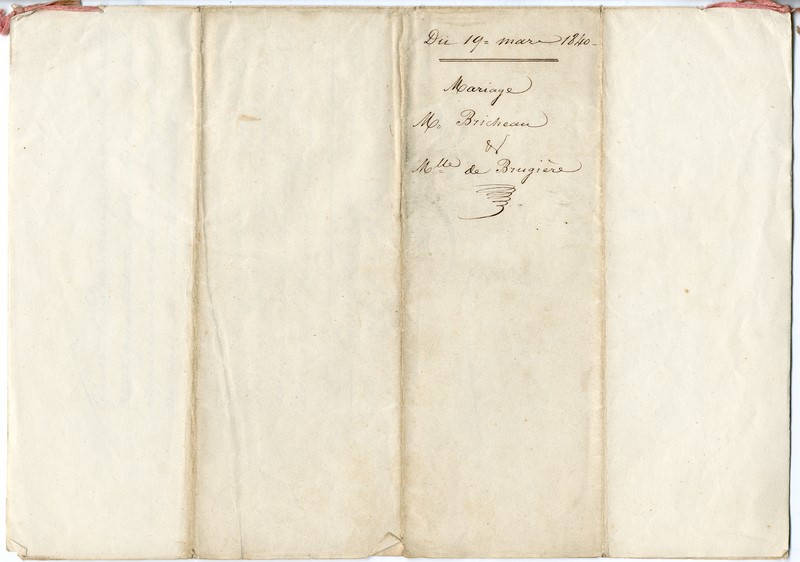 Du 19 = mars 1840 -
Mariage
M. Bricheau
&
Mlle de Brugière